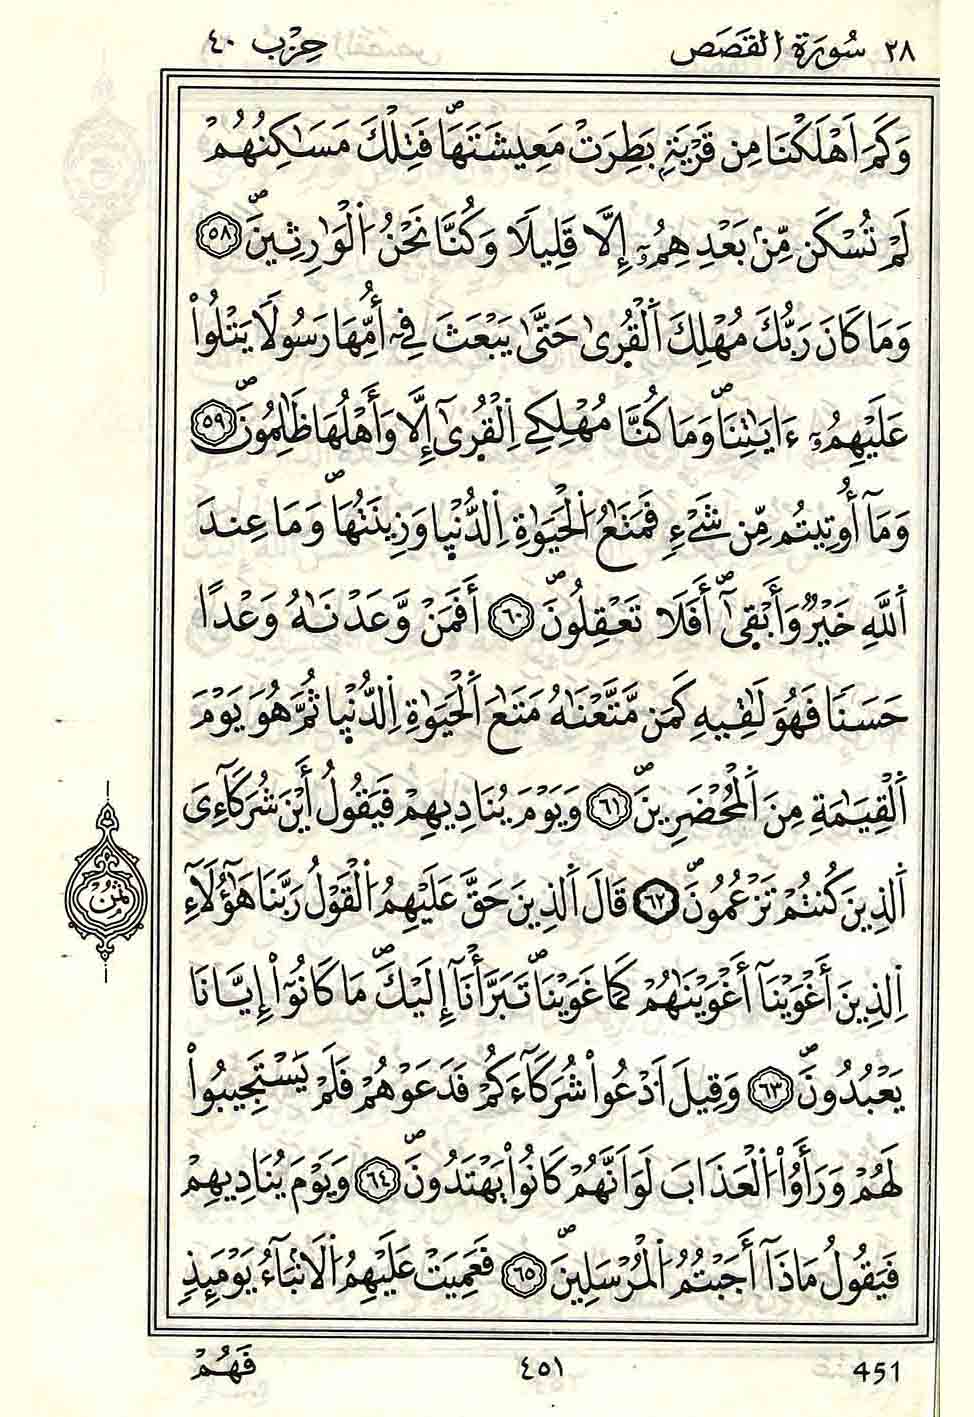 ٢٨ سُورَةُ القَصَصِ حِزْب ٤٠
وَكَمَ اَهْلَكْنَا مِن قَرْيَةِۢ بَطِرَتْ مَعِيشَتَهَاۖ فَتِلْكَ مَسَٰكِنُهُمْ
لَمْ تُسْكَن مِّنۢ بَعْدِهِمُۥٓ إِلَّا قَلِيلًا وَكُنَّا نَحْنُ اُ۬لْوَٰرِثِينَۖ ٥٨
وَمَا كَانَ رَبُّكَ مُهْلِكَ اَ۬لْقُر۪ىٰ حَتَّىٰ يَبْعَثَ فِے أُمِّهَا رَسُولًا يَتْلُواْ
عَلَيْهِمُۥٓ ءَايَٰتِنَاۖ وَمَا كُنَّا مُهْلِكِے اِ۬لْقُر۪ىٰٓ إِلَّا وَأَهْلُهَا ظَٰلِمُونَۖ ٥٩
وَمَآ أُوتِيتُم مِّن شَےْءٖ فَمَتَٰعُ اُ۬لْحَيَوٰةِ اِ۬لدُّنْي۪ا وَزِينَتُهَاۖ وَمَا عِندَ
اَ۬للَّهِ خَيْرٞ وَأَبْق۪ىٰٓۖ أَفَلَا تَعْقِلُونَۖ ٦٠ أَفَمَنْ وَّعَدْنَٰهُ وَعْدًا
حَسَنٗا فَهُوَ لَٰقِيهِ كَمَن مَّتَّعْنَٰهُ مَتَٰعَ اَ۬لْحَيَوٰةِ اِ۬لدُّنْي۪ا ثُمَّ هُوَ يَوْمَ
اَ۬لْقِيَٰمَةِ مِنَ اَ۬لْمُحْضَرِينَۖ ٦١ وَيَوْمَ يُنَادِيهِمْ فَيَقُولُ أَيْنَ شُرَكَآءِىَ
ثمن
اَ۬لذِينَ كُنتُمْ تَزْعُمُونَۖ ٦٢ قَالَ اَ۬لذِينَ حَقَّ عَلَيْهِمُ اُ۬لْقَوْلُ رَبَّنَا هَٰٓؤُلَآءِ
اِ۬لذِينَ أَغْوَيْنَآ أَغْوَيْنَٰهُمْ كَمَا غَوَيْنَاۖ تَبَرَّأْنَآ إِلَيْكَۖ مَا كَانُوٓاْ إِيَّانَا
يَعْبُدُونَۖ ٦٣ وَقِيلَ اَ۟دْعُواْ شُرَكَآءَكُمْ فَدَعَوْهُمْ فَلَمْ يَسْتَجِيبُواْ
لَهُمْ وَرَأَوُاْ اُ۬لْعَذَابَ لَوَ اَنَّهُمْ كَانُواْ يَهْتَدُونَۖ ٦٤ وَيَوْمَ يُنَادِيهِمْ
فَيَقُولُ مَاذَآ أَجَبْتُمُ اُ۬لْمُرْسَلِينَۖ ٦٥ فَعَمِيَتْ عَلَيْهِمُ اُ۬لَانۢبَآءُ يَوْمَئِذٖ
فَهُمْ ٤٥١ 451